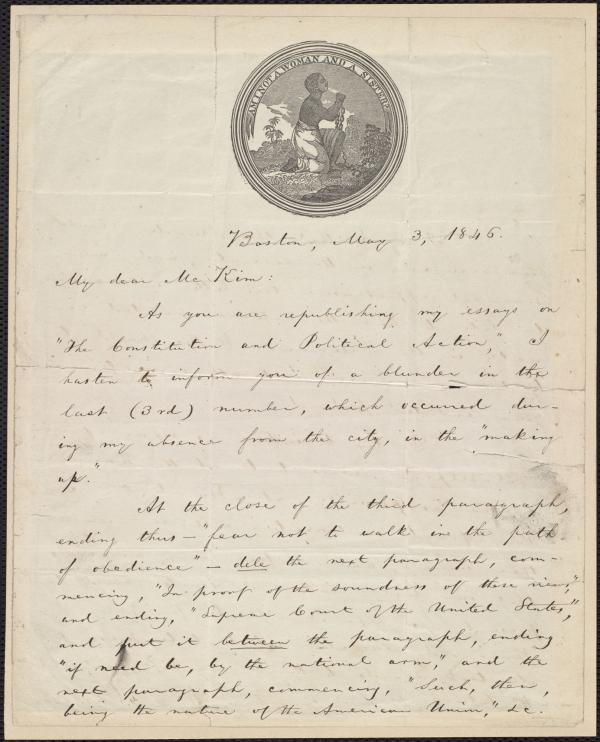 AM I NOT A WOMAN AND A SISTER?
Boston, May 3, 1846.
My dear Mc Kim:
As you are republishing my essays on
"The Constitution and Political Action," I
hasten to inform you of a blunder in the
last (3rd) number, which occurred dur-
ing my absence from the city, in the "making
up."
At the close of the third paragraph,
ending thus — "fear not to walk in the path
of obedience" — dele the next paragraph, com-
mencing, "In proof of the soundness of these views,"
and ending, "Supreme Court of the United States,"
and put it between the paragraph, ending
"if need be, by the national arm," and the
next paragraph, commencing, "Such, then,
being the nature of the American Union," &c.